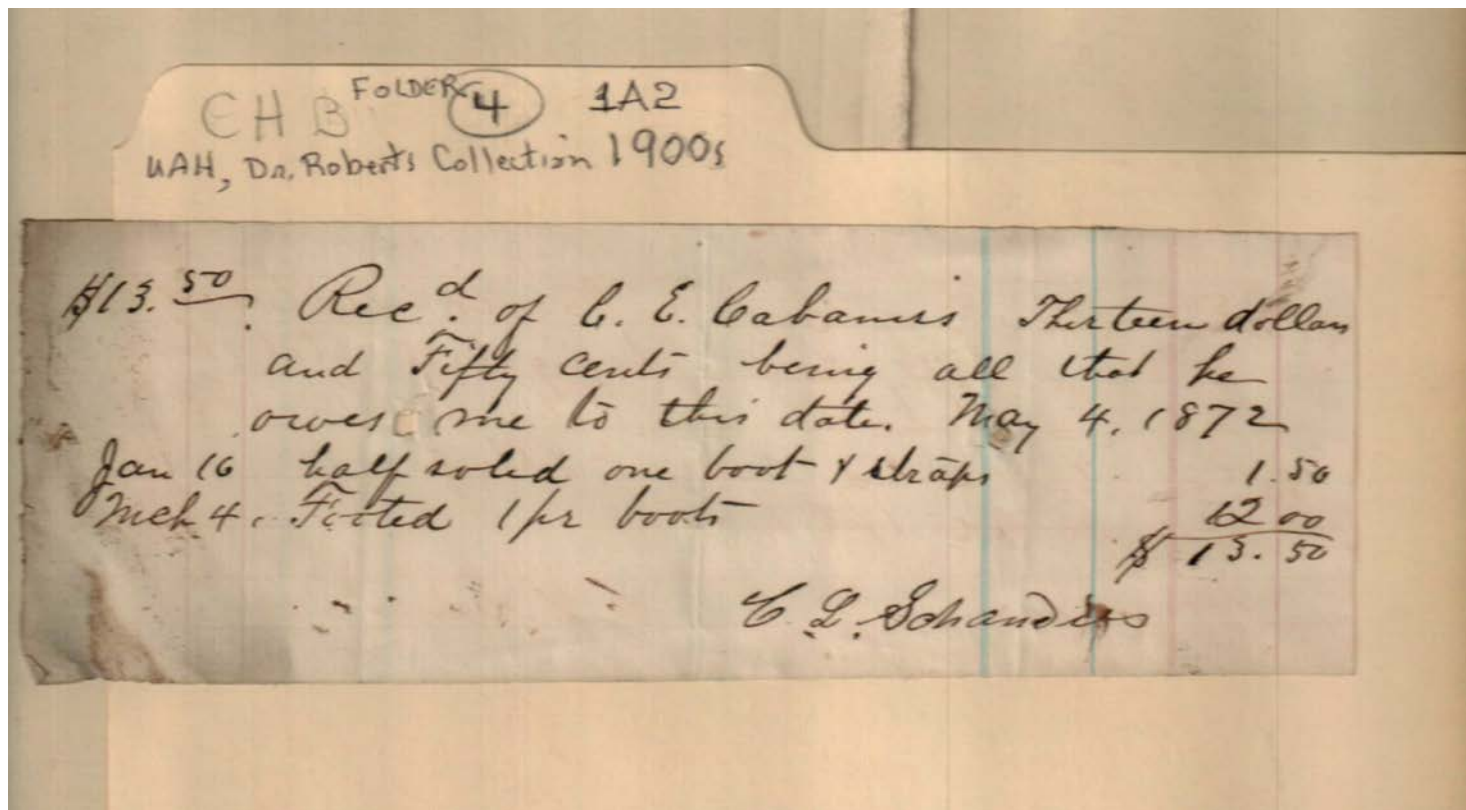 CHB FOLDER 4 1A2
UAH, Dr. Roberts Collection 1900s
$13.50 Recd. of C. E. Cabaniss Thirteen dollars
and Fifty cents being all that he
owes me to this date. May 4, 1872
Jan 16 half soled one boot & straps 1.50
Mch 4. Footed 1 pr boots 12 00
$ 13.50
C. L. Schanders